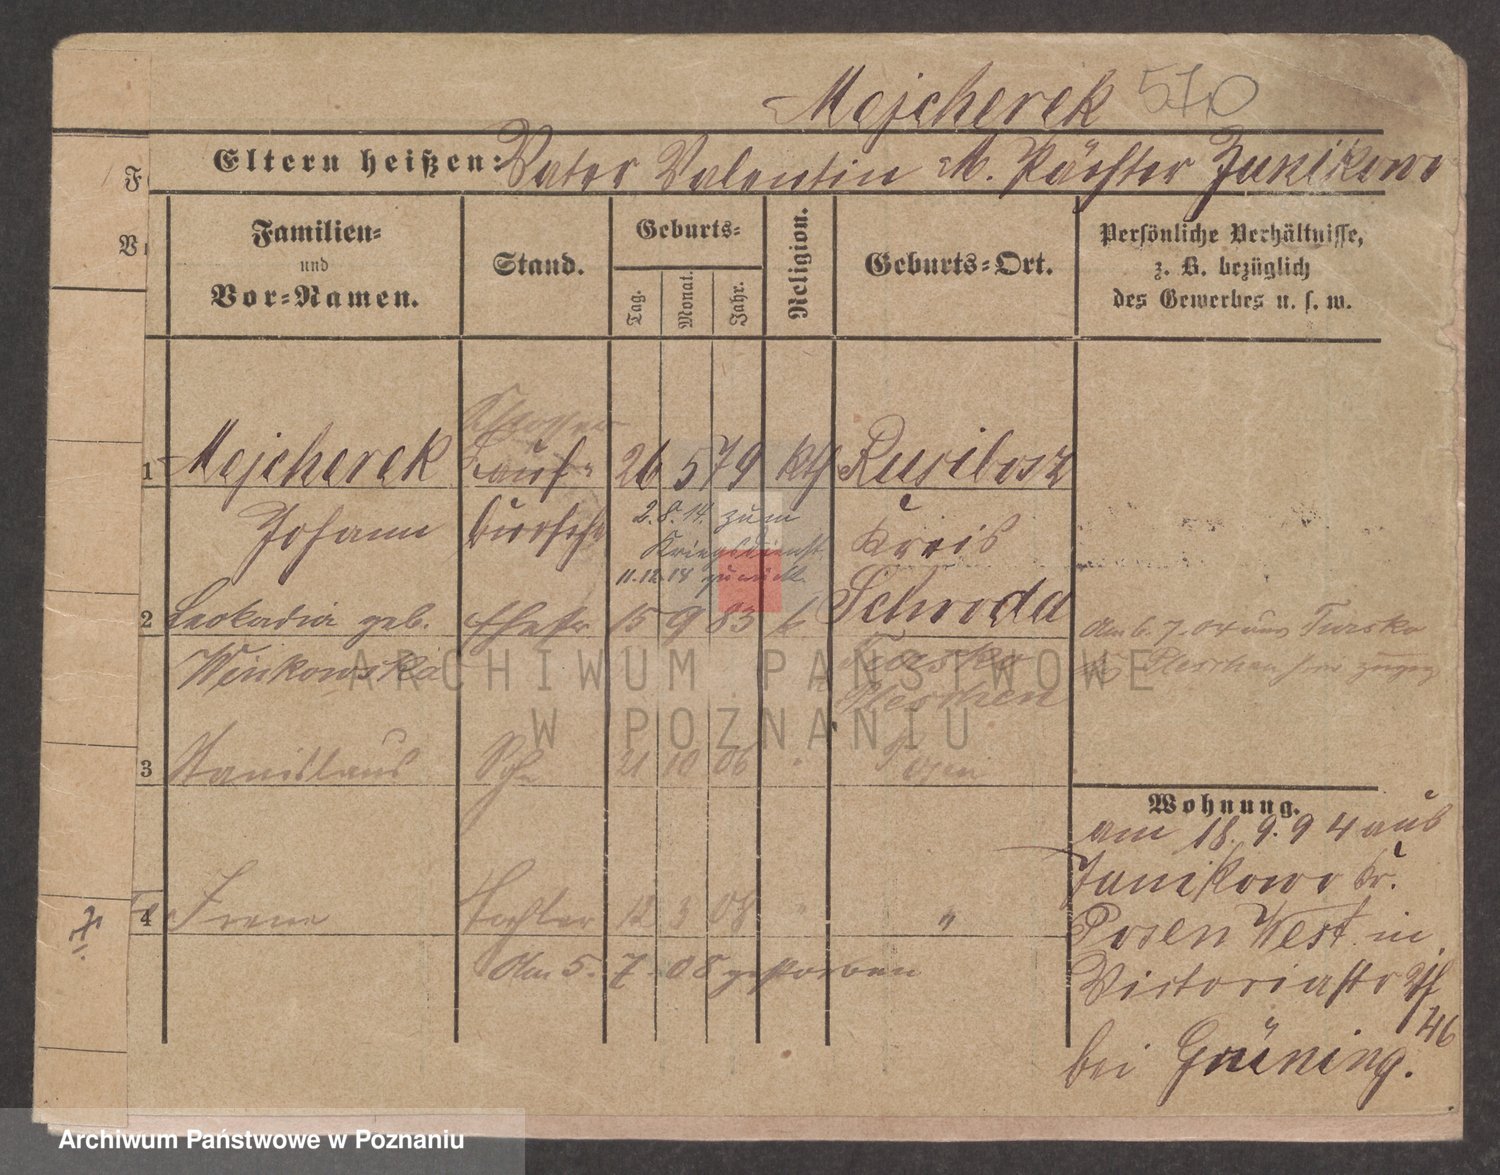 Mejcherek 570
Eltern heißen: Vater Valentin M. Pächter Junikowo
Familien- und Vor-Namen.
Stand.
Geburts-
Tag. Monat. Jahr.
Religion.
Geburts-Ort.
Persönliche Verhältnisse,
z. B. bezüglich
des Gewerbes u. s. w.
1 Mejcherek Lauf- 26 5 79 kth
Johann bursche Kreis
2. 8. 14 zum
Kriegsdienst
11.12.14 zurück
Schroda
2 Leokadia geb. Ehefr 15 9 83 k
Winkowska Pleschen
am 6. 7. 04 aus Tursko
3 Stanislaus Sohn 21 10 06 " Posen
4 Irene Tochter 12 3 08 " "
am 5. 7. 08 gestorben
Wohnung.
am 18. 9. 94 aus
Junikowo Kr.
Posen West in
Victoriastr
46
bei Grüning.
ARCHIWUM PAŃSTWOWE
W POZNANIU
Archiwum Państwowe w Poznaniu